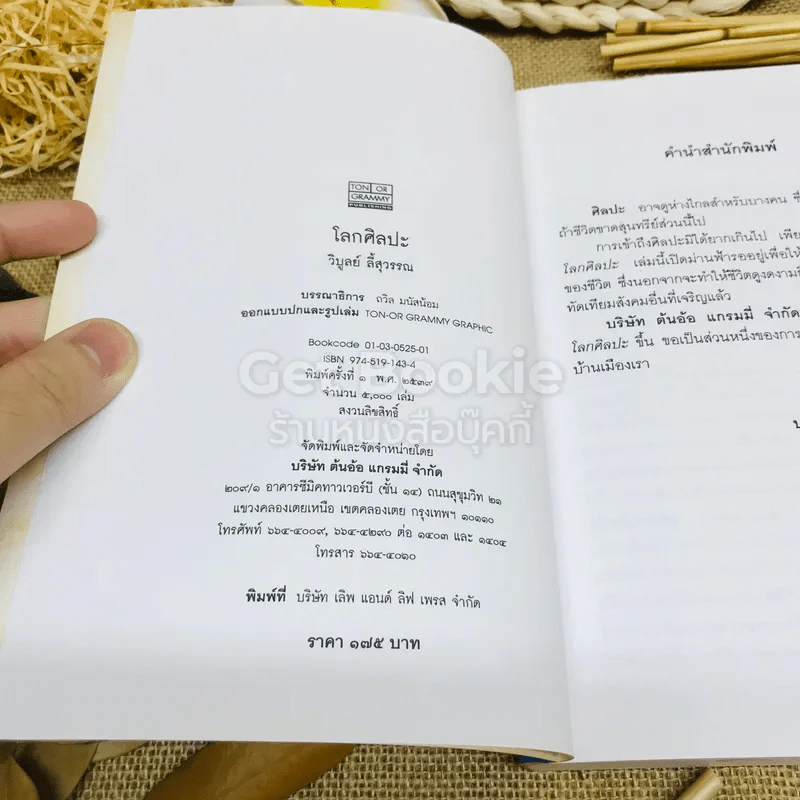 TON OR
GRAMMY
PUBLISHING
โลกศิลปะ
วิบูลย์ ลี้สุวรรณ
บรรณาธิการ ถวิล มนัสน้อม
ออกแบบปกและรูปเล่ม TON-OR GRAMMY GRAPHIC
Bookcode 01-03-0525-01
ISBN 974-519-143-4
พิมพ์ครั้งที่ ๑ พ.ศ. ๒๕๓๙
จำนวน ๕,๐๐๐ เล่ม
สงวนลิขสิทธิ์
จัดพิมพ์และจัดจำหน่ายโดย
บริษัท ต้นอ้อ แกรมมี่ จำกัด
๒๐๙/๑ อาคารซีมิคทาวเวอร์บี (ชั้น ๑๔) ถนนสุขุมวิท ๒๑
แขวงคลองเตยเหนือ เขตคลองเตย กรุงเทพฯ ๑๐๑๑๐
โทรศัพท์ ๖๖๔-๔๐๐๙, ๖๖๔-๔๒๙๐ ต่อ ๑๔๐๓ และ ๑๔๐๔
โทรสาร ๖๖๔-๔๐๑๐
พิมพ์ที่ บริษัท เลิพ แอนด์ ลิฟ เพรส จำกัด
ราคา ๑๗๕ บาท
คำนำสำนักพิมพ์
ศิลปะ อาจดูห่างไกลสำหรับบางคน
ถ้าชีวิตขาดสุนทรีย์ส่วนนี้ไป
การเข้าถึงศิลปะมิได้ยากเกินไป
โลกศิลปะ เล่มนี้เปิดม่านฟ้ารออยู่เพื่อให้
ของชีวิต ซึ่งนอกจากจะทำให้ชีวิตดูงดงาม
ทัดเทียมสังคมอื่นที่เจริญแล้ว
บริษัท ต้นอ้อ แกรมมี่ จำกัด
โลกศิลปะ ขึ้น ขอเป็นส่วนหนึ่งของการ
บ้านเมืองเรา
Get Bookie
ร้านหนังสือบุ๊คกี้